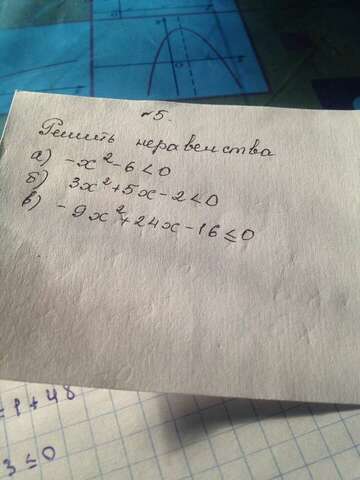 №5.
Решить неравенства
а) -x²-6<0
б) 3x²+5x-2<0
в) -9x²+24x-16≤0
+48
3≤0